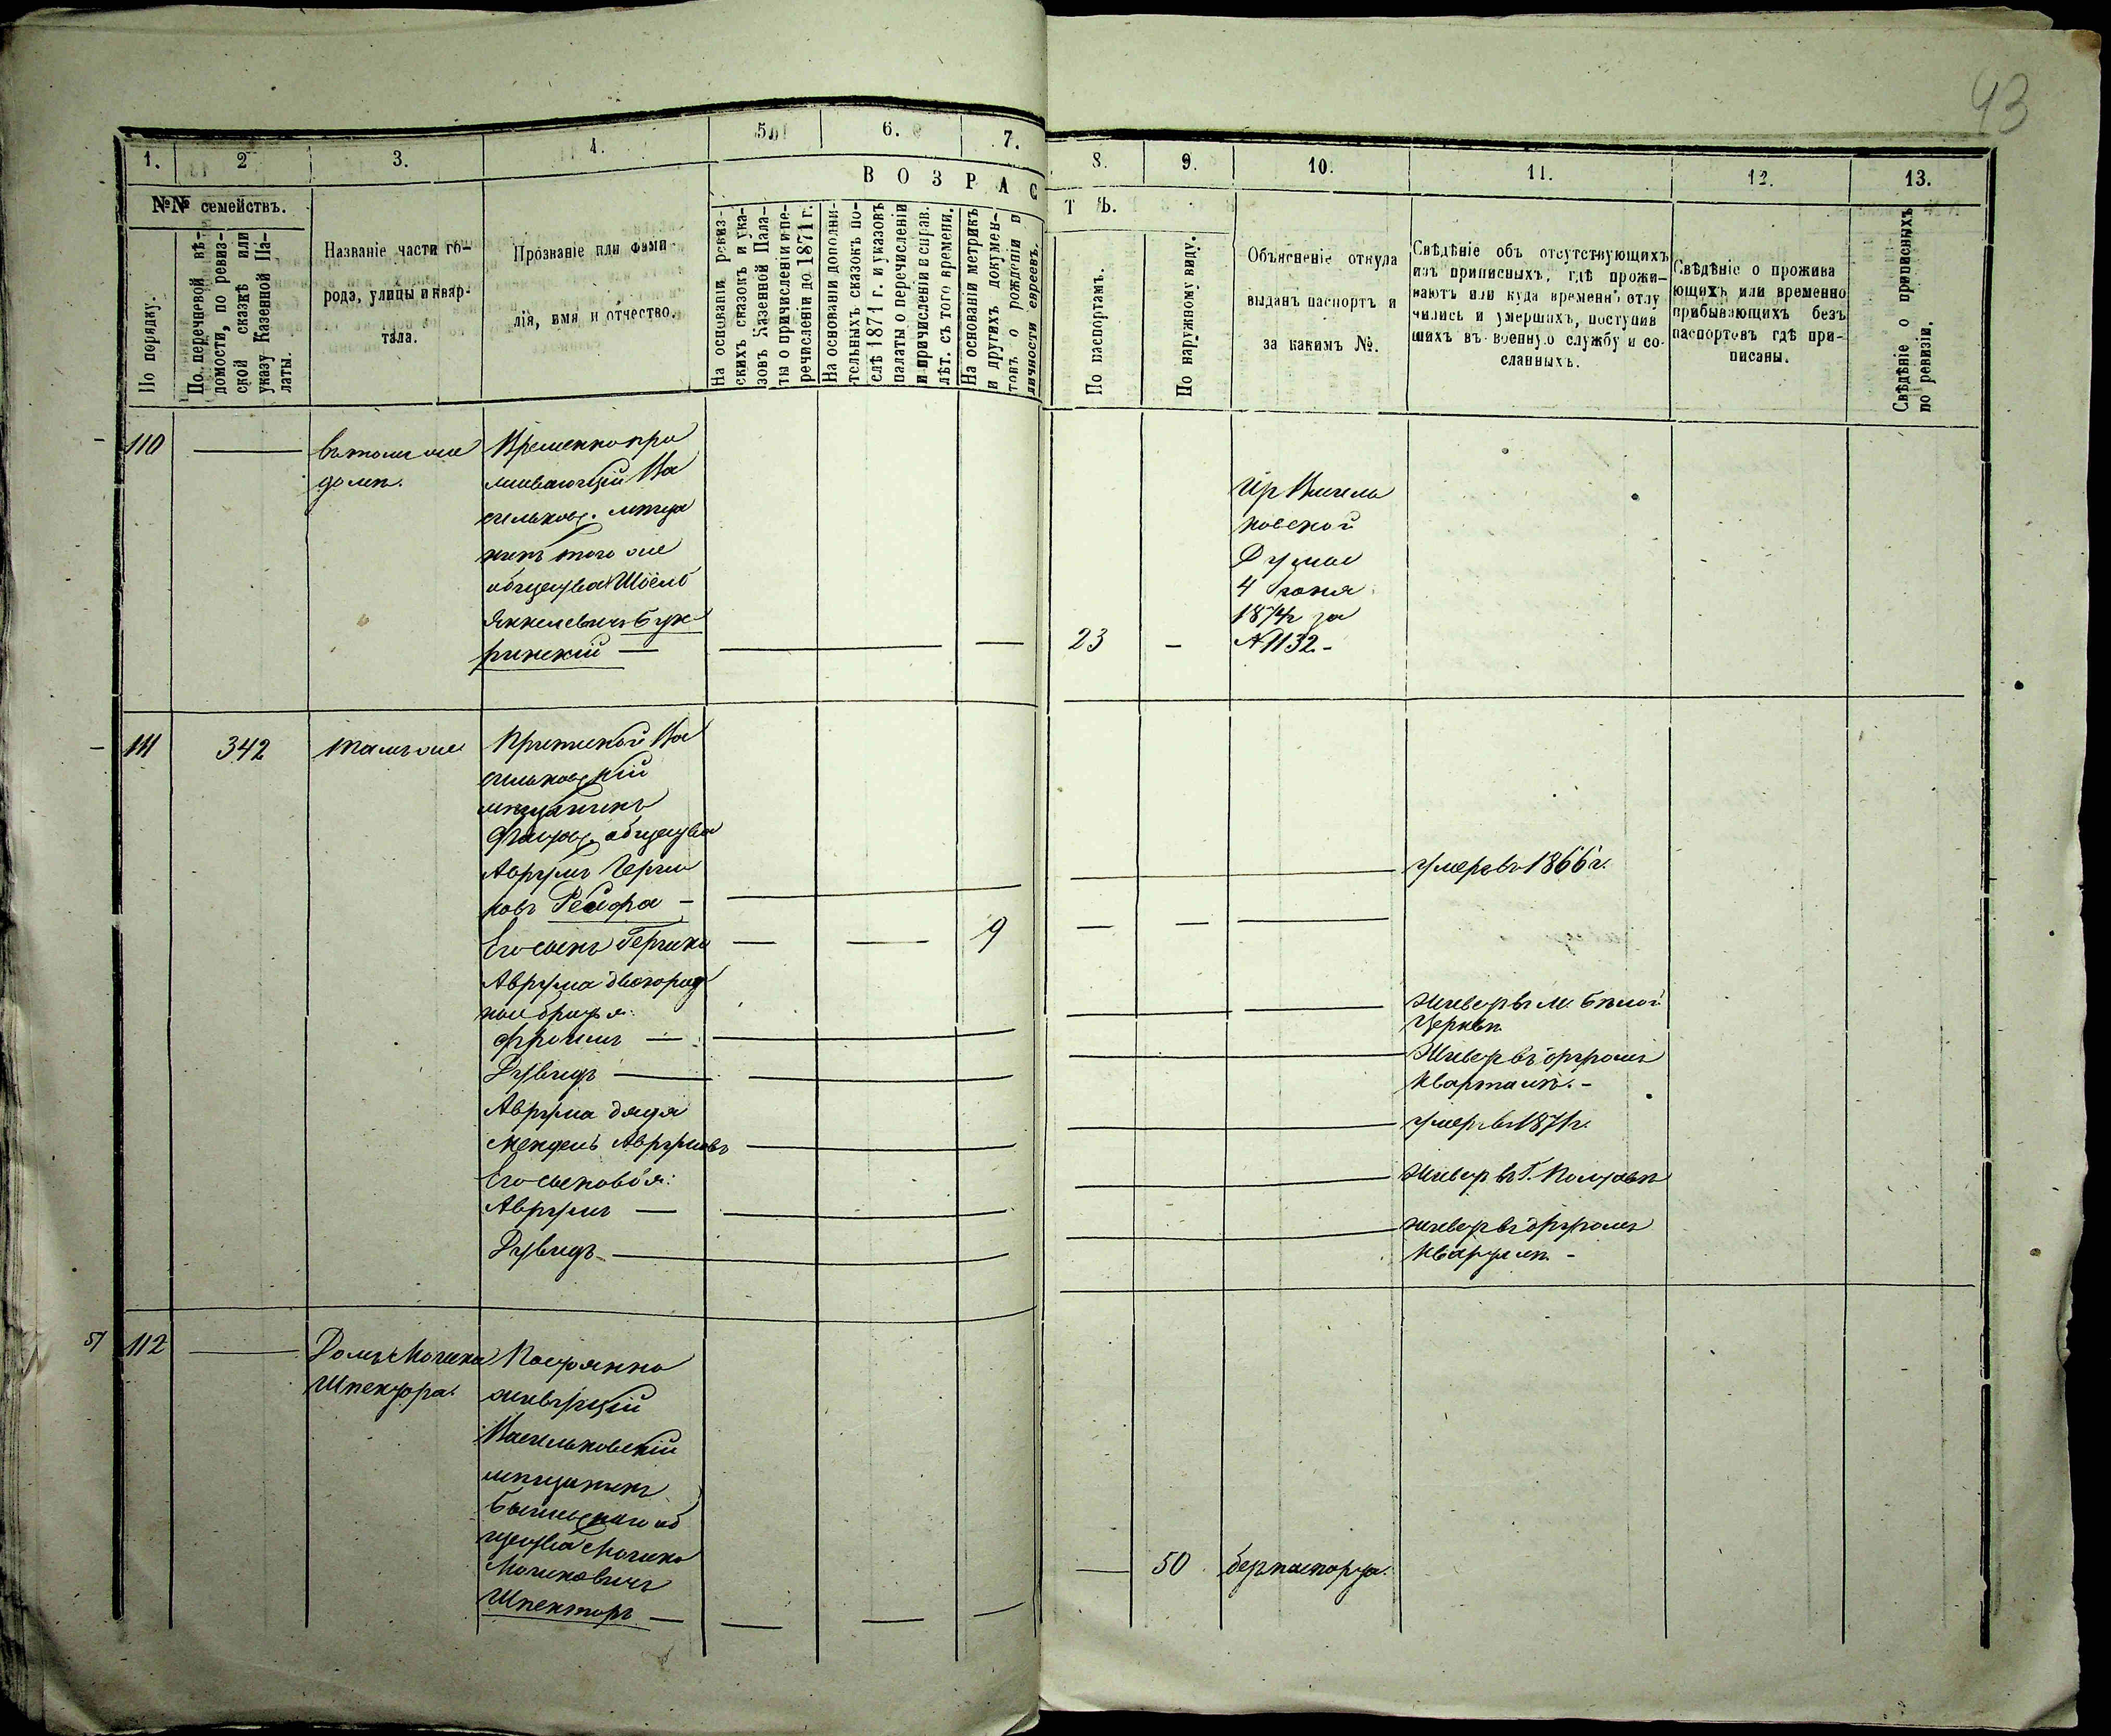 43
1. 2 3. 4. 5. 6. 7. 8. 9. 10. 11. 12. 13.
№№ семействъ.
По порядку.
По перечневой вѣ-
домости, по ревиз-
ской сказкѣ или
указу Казенной Па-
латы.
Названіе части го-
рода, улицы и квар-
тала.
Прозваніе или фами-
лія, имя и отчество.
ВОЗРАСТЪ.
На основаніи ревиз-
скихъ сказокъ и ука-
зовъ Казенной Пала-
ты о причисленіи и пе-
речисленіи до 1871 г.
На основаніи дополни-
тельныхъ сказокъ по-
слѣ 1871 г. и указовъ
палаты о перечисленіи
и причисленіи в справ.
лѣт. съ того времени.
На основаніи метрикъ
и другихъ докумен-
товъ о рожденіи и
личности евреевъ.
По паспортамъ.
По наружному виду.
Объясненіе откуда
выданъ паспортъ и
за какимъ №.
Свѣдѣніе объ отсутствующихъ
изъ приписныхъ, гдѣ прожи-
ваютъ или куда временно отлу
чились и умершихъ, поступив
шихъ въ военную службу и со-
сланныхъ.
Свѣдѣніе о прожива
ющихъ или временно
прибывающихъ безъ
паспортовъ гдѣ при-
писаны.
Свѣдѣніе о приписныхъ
по ревизіи.
110 — въ томъ же
домѣ.
Временно про
живающій Ва
сильков. мѣща
нинъ того же
общества Шоелъ
Янкелевичъ Бук
ринскій — 23 —
Из Василь
ковской
Думы
4 Іюня
1874 г за
№ 1132.-
111 342 тамъ же
Приписной Ва
сильковскій
мѣщанинъ
Фастов. общества
Аврумъ Герш
ковъ Рейфа — умеръ въ 1866 г.
Его сынъ Гершко — — 9 — — —
Аврума двоюрод
ные братья:
Фроимъ — Живетъ въ М. Бѣлой
Церкви
Дувидъ — Живетъ въ другомъ
кварталѣ.-
Аврума дядя
Мендель Аврумовъ — умеръ въ 1871 г.
Его сыновья:
Аврумъ — Живетъ въ Г. Полтавѣ
Дувидъ — живетъ въ другомъ
кварталѣ -
51 112 — Домъ Мошка
Шпектора.
Постоянно
живущій
Васильковскій
мѣщанинъ
об
щества Мошко
Мошковичъ
Шпекторъ — — — — — 50 без паспорта.